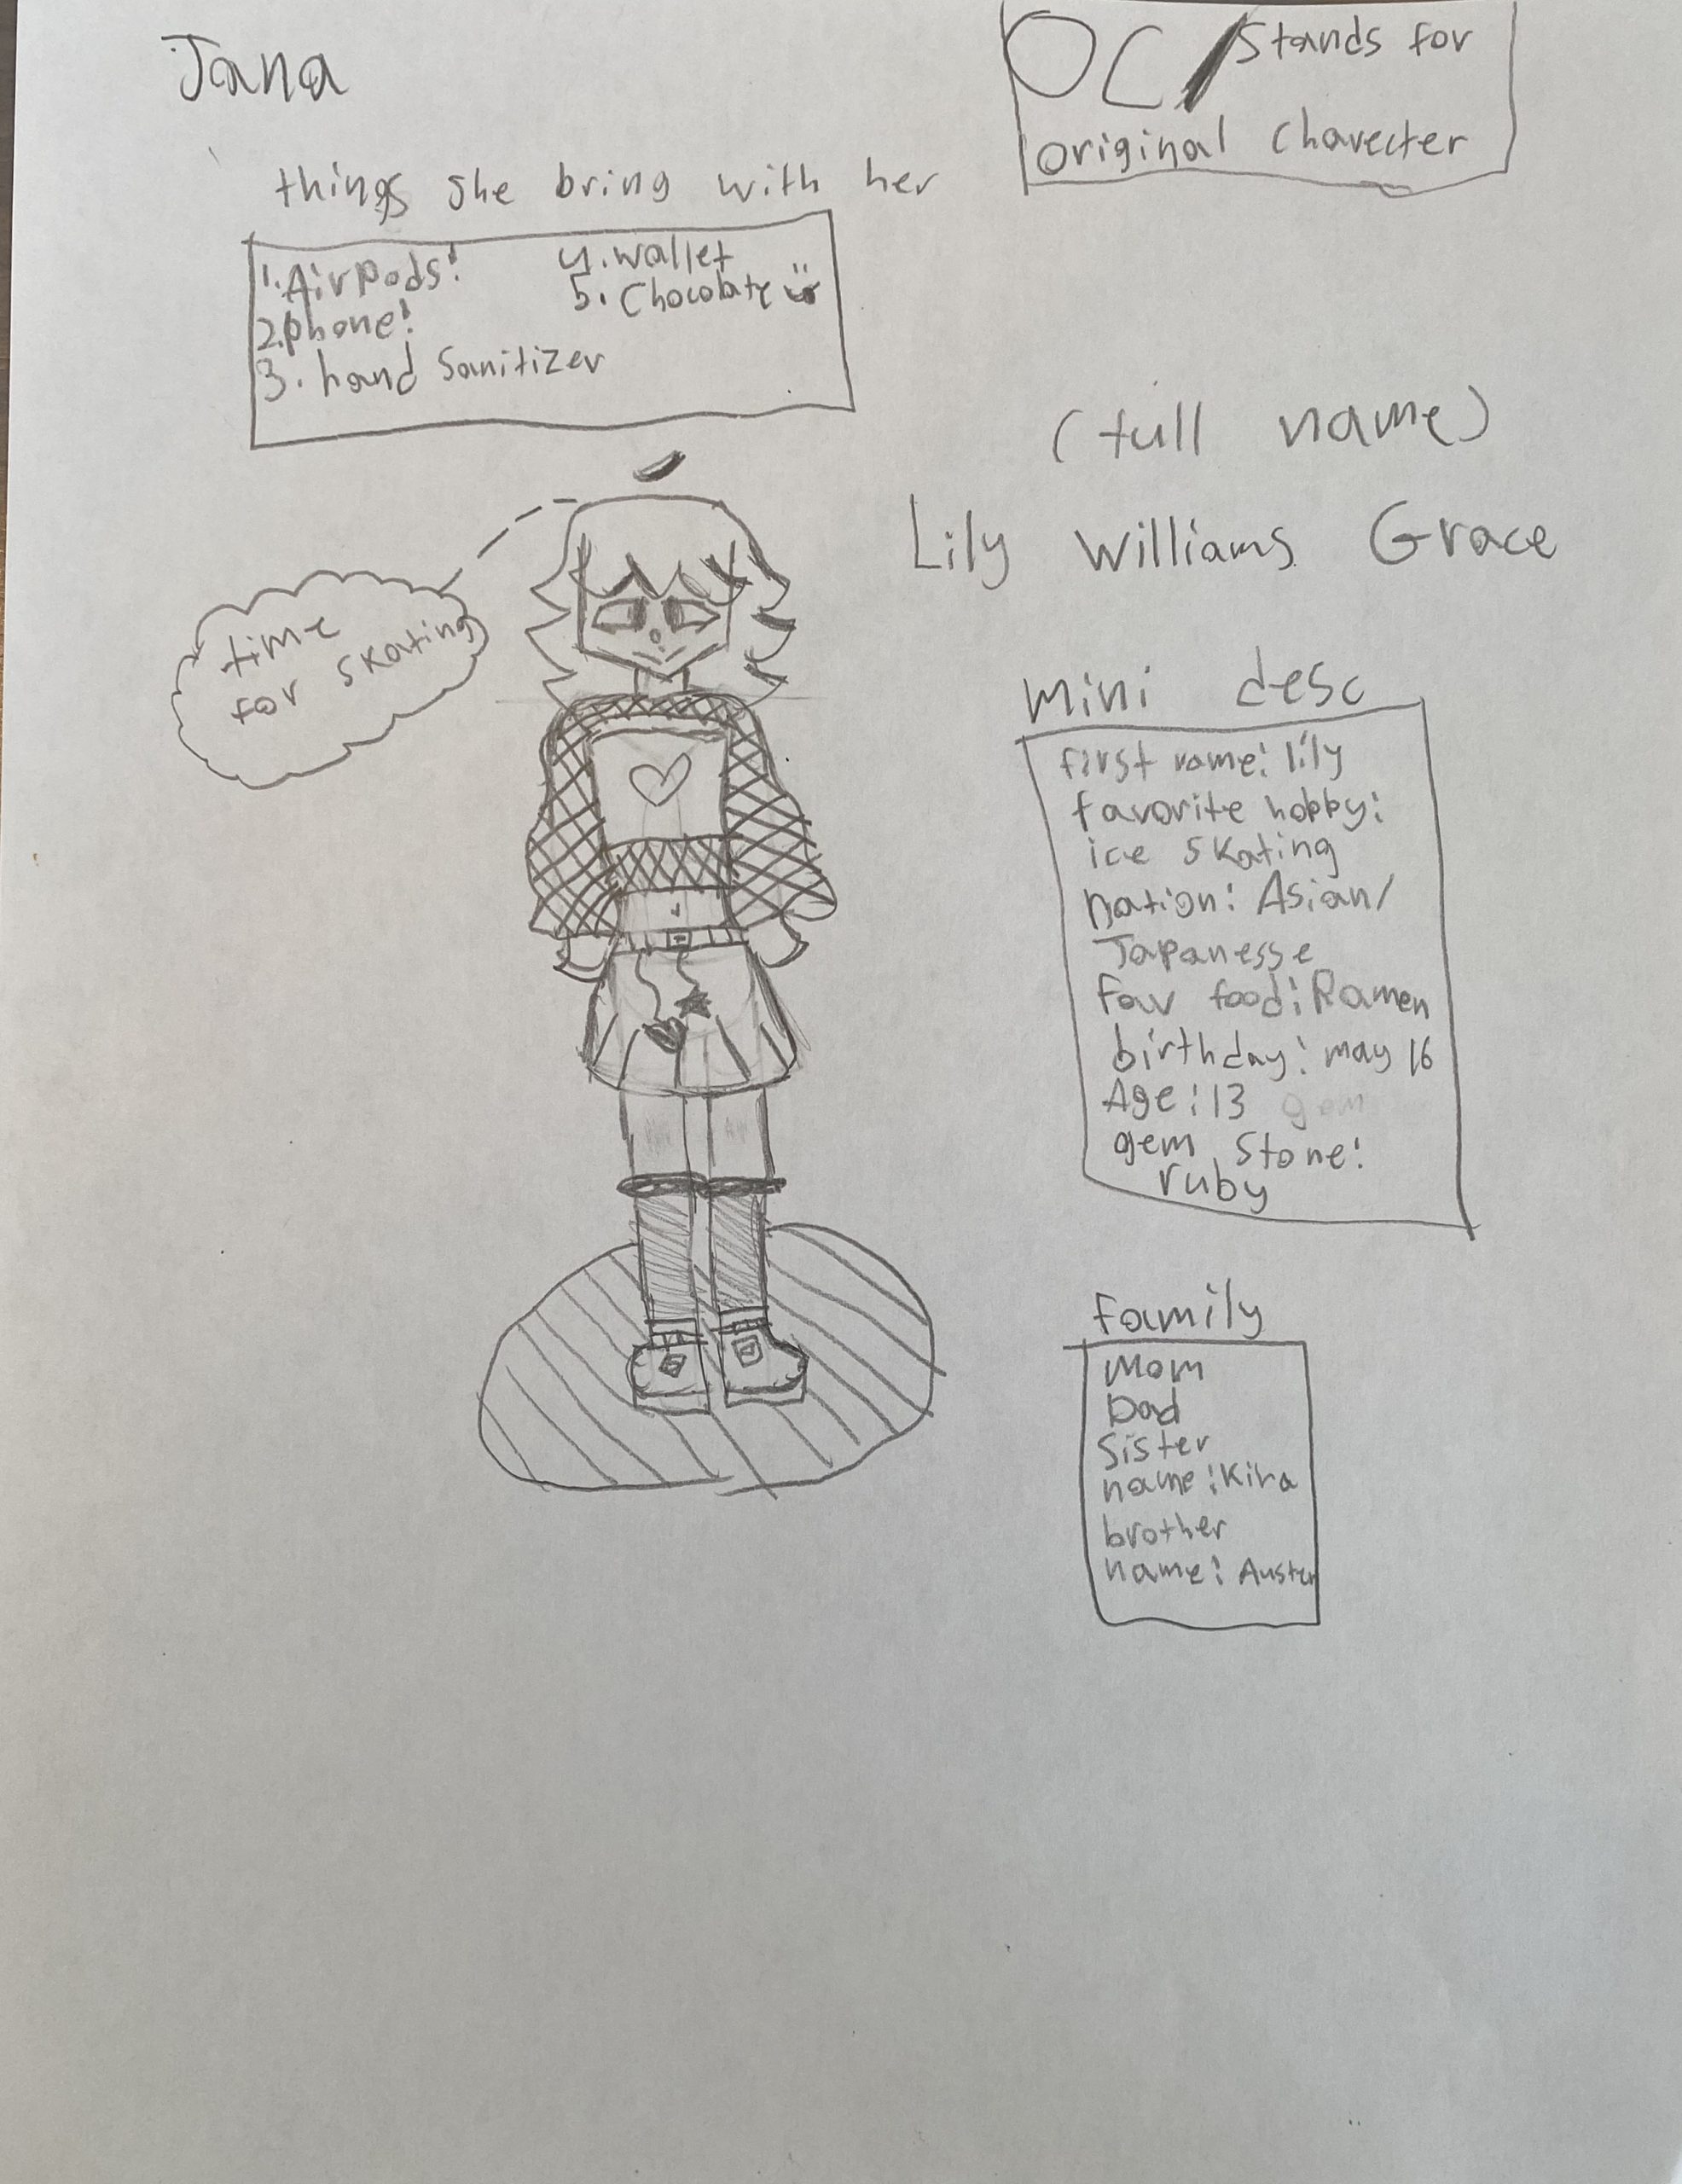 Jana
OC/Stands for
original charecter
things she bring with her
1. AirPods!
2. phone!
3. hand Sanitizer
4. wallet
5. Chocolate
(full name)
Lily Williams Grace
time
for skating
mini desc
first name: lily
favorite hobby:
ice skating
nation: Asian/
Japanesse
fav food: Ramen
birthday: may 16
Age: 13 gem
gem stone:
ruby
family
Mom
Dad
Sister
name: Kira
brother
name: Austen